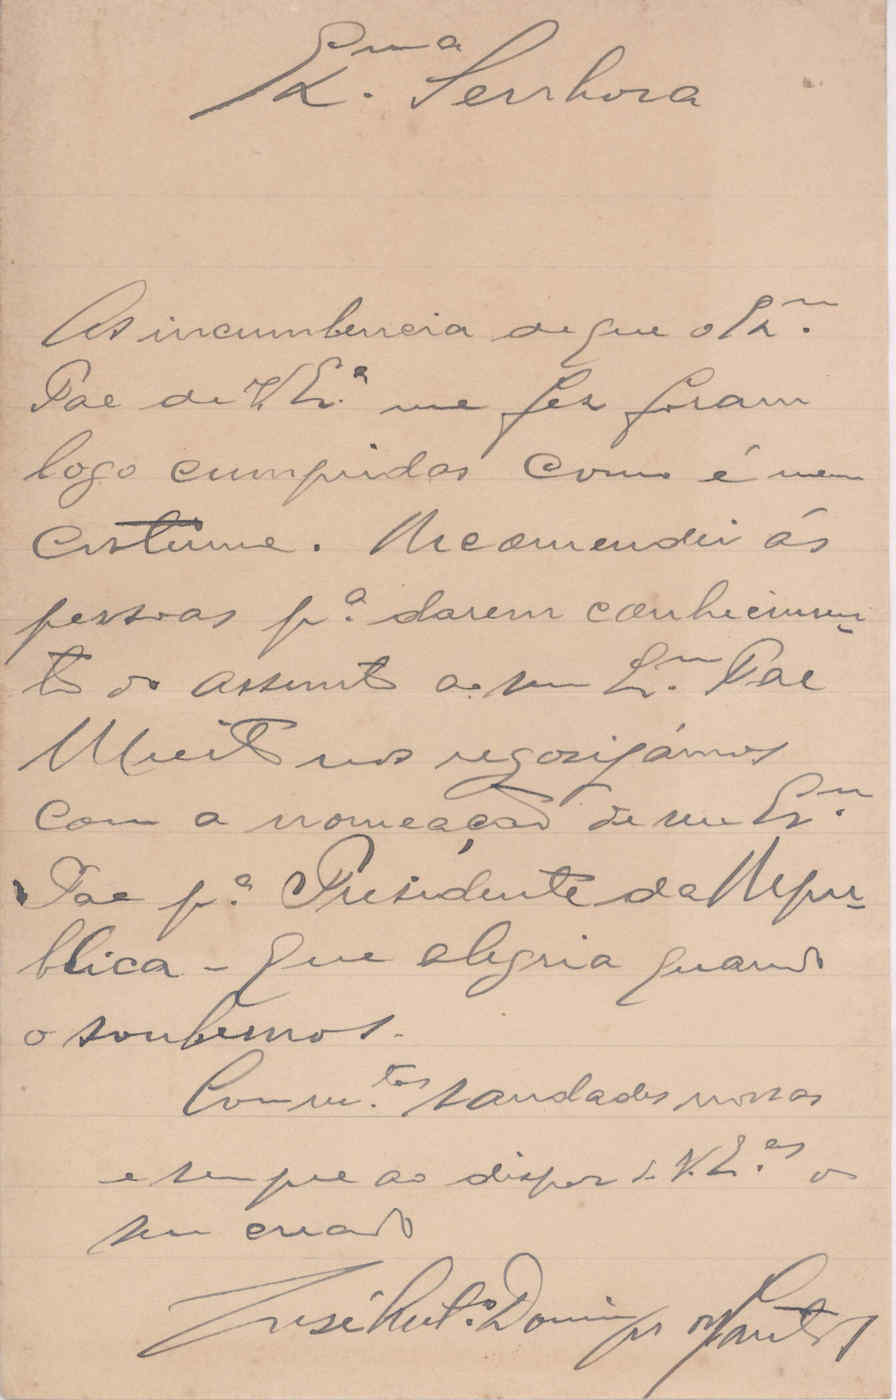 Exma. Senhora
As incumbencia de que o Exm.
Pae de V. Exª me fez foram
logo cumpridas como é meu
costume. Recomendei ás
pessoas pª. darem conhecimen-
to do assunto ao seu Exm. Pae
Muito nos regosijámos
com a nomeação de seu Exm.
Pae pª. Presidente da Repu-
blica - que alegria quando
o soubemos.
Com m.tas saudades nossas
e sempre ao dispor de V. Ex.as o
seu creado
José Domingos dos Santos